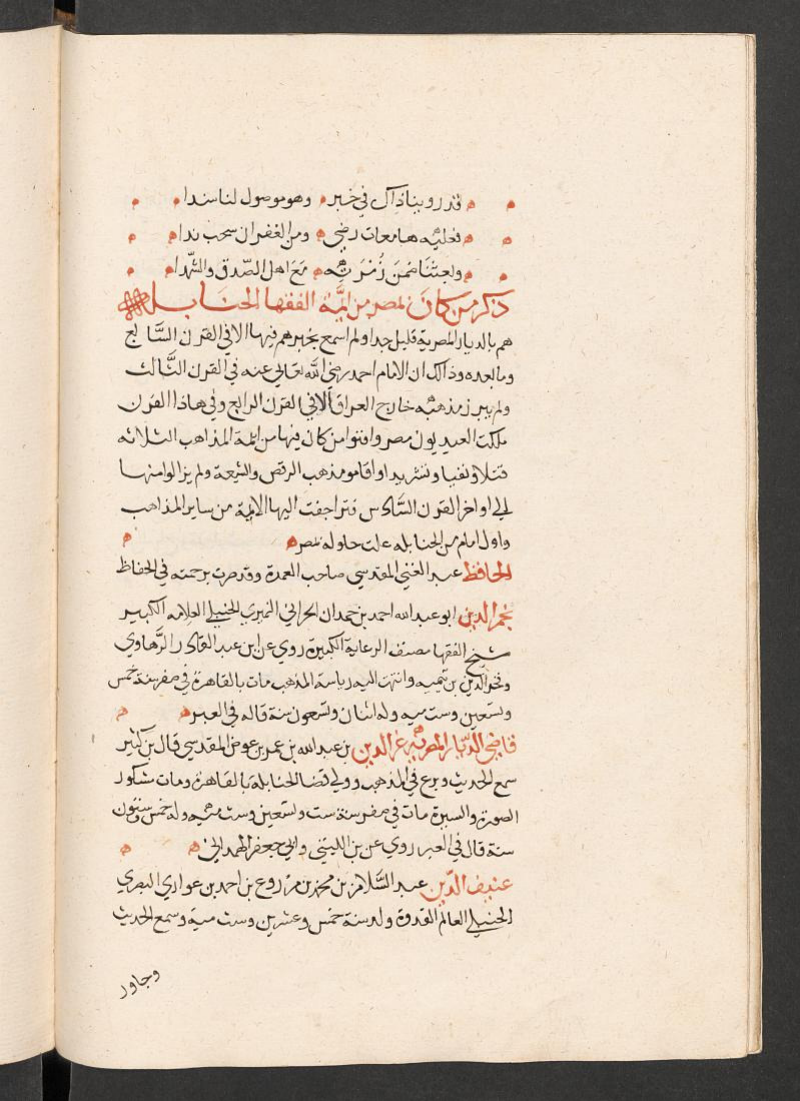 قد روينا ذاك في خبر وهو موصول لنا سندا
فعليه هامعات رضي ومن الغفران سحب ندا
ولجتنا ضمن زمرته مع اهل الصدق والشهدا
ذكر من كان بمصر من ايمة الفقها الحنابلة
هم بالديار المصرية قليل جدا ولم اسمع بخبرهم فيها الا في القرن السابع
وما بعده وذالك ان الامام احمد رضي الله تعالي عنه في القرن الثالث
ولم يبرز مذهبه خارج العراق الا في القرن الرابع وفي هاذا القرن
ملكت العبديون مصر وافنوا من كان فيها من ايمة المذاهب الثلاثه
قتلا ونفيا وتشريدا واقامو مذهب الرفض والشيعة ولم يزالوا منها
الي اواخر القرن السادس فتراجفت اليها الايمة من ساير المذاهب
واول امام من الحنابله علت حلوله بمصر
الحافظ عبد الغني المقدسي صاحب العمدة وقد مرت ترجمته في الحفاظ
نجم الدين ابو عبد الله احمد بن حمدان الحراني النميري الحنبلي العلامه الكبير
شيخ الفقها مصنف الرعاية الكبيرة روي عن ابن عبد القادر الرهاوي
وفخر الدين بن تيميه وانتهت اليه رياسة المذهب مات بالقاهرة في صفر سنة خمس
وتسعين وست ميه وله اثنان وتسعون سنة قاله في العبر
قاضي الديار المصريه عز الدين بن عبد الله بن عمر بن عوض المقدسي قال بن كثير
سمع الحديث وبرع في المذهب وولي قضا الحنابلة بالقاهرة ومات مشكور
الصورة والسيرة مات في صفر سنة ست وتسعين وست ميه وله خمس وستون
سنة قال في العبر روي عن بن الليتي وابي جعفر الهمداني
عفيف الدين عبد السلام بن محمد بن مزروع بن احمد بن عوازي البصري
الحنبلي العالم القدوة ولد سنة خمس وعشرين وست مية وسمع الحديث
وجاور